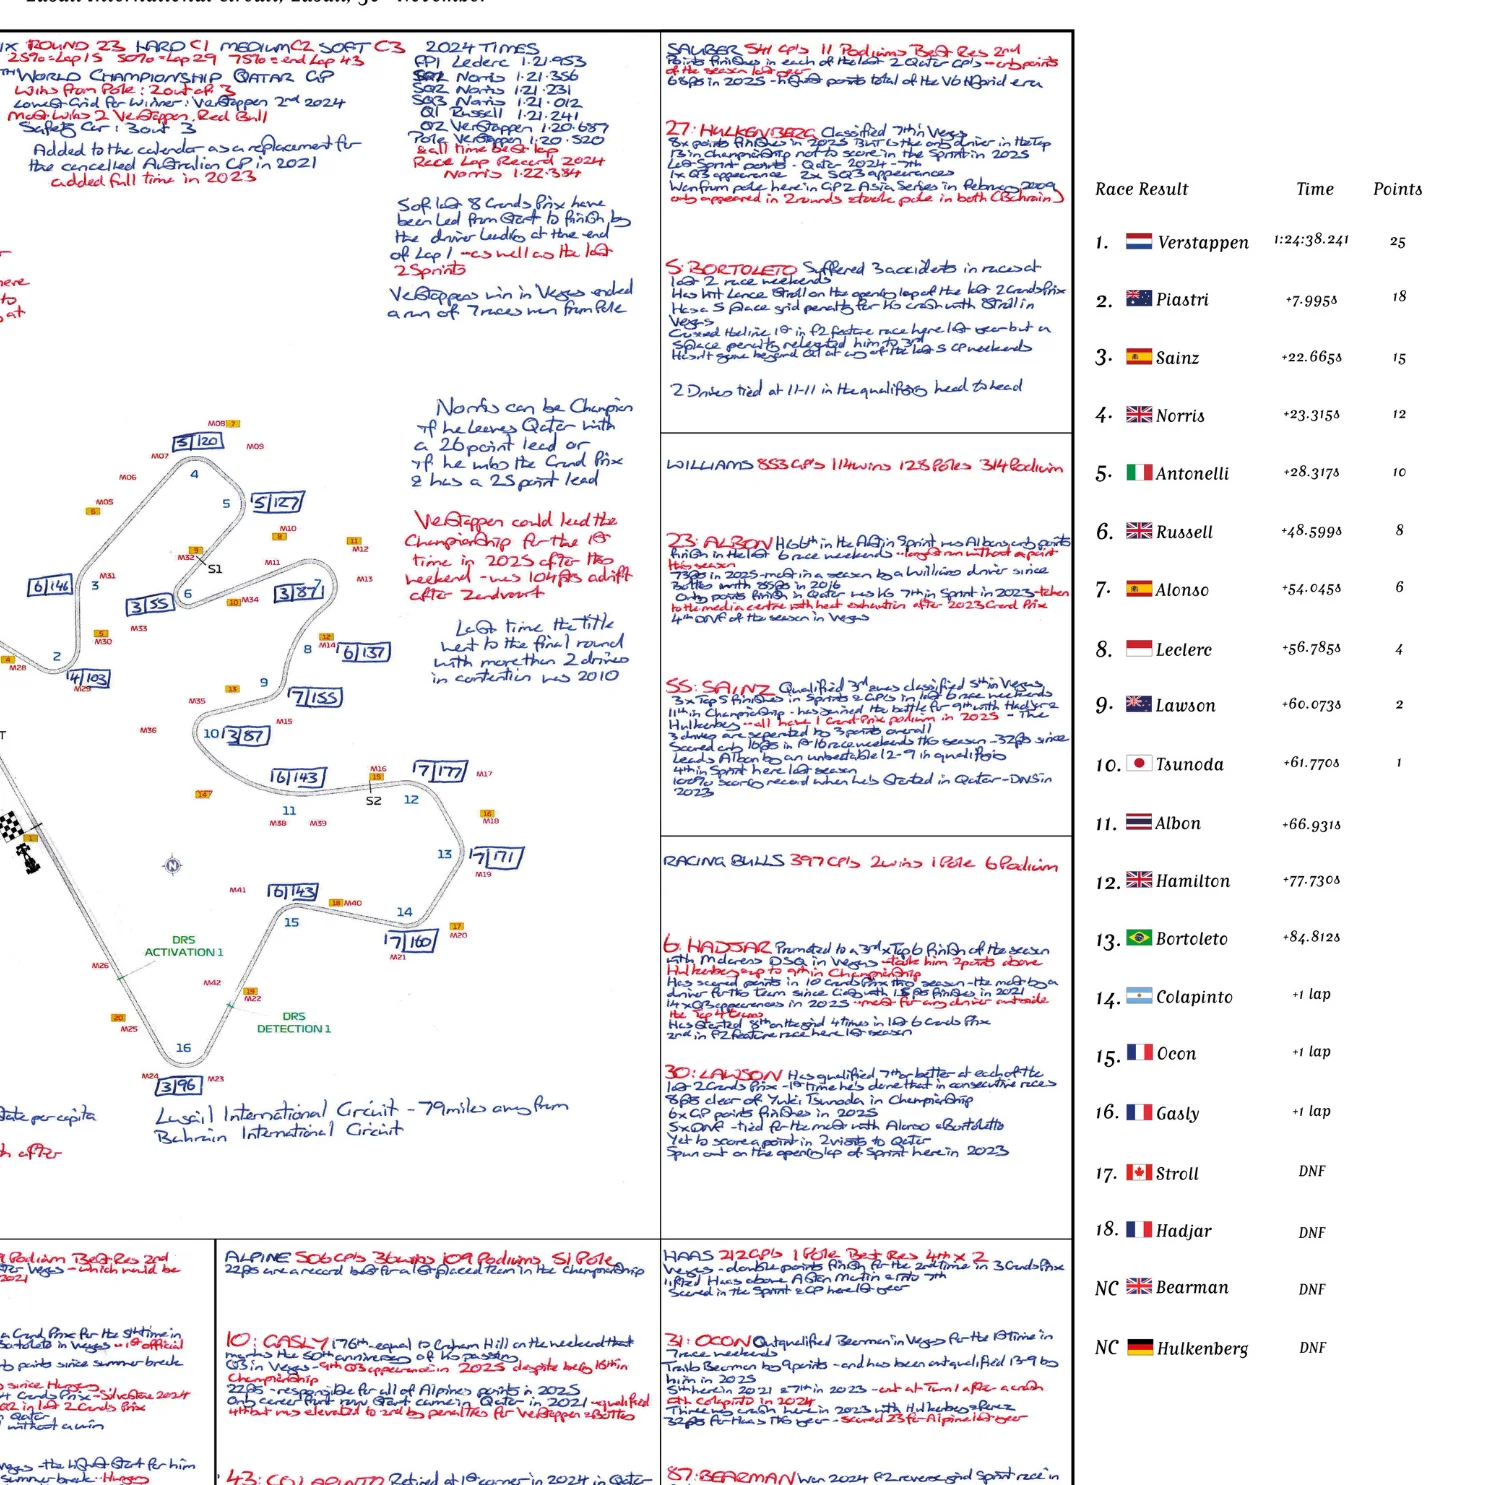 Lusail International Circuit, Lusail, 30th November
ROUND 23 HARD C1 MEDIUM C2 SOFT C3
25% = Lap 15 50% = Lap 29 75% = end Lap 43
WORLD CHAMPIONSHIP QATAR GP
Wins from Pole: 2 out of 3
Lowest Grid for Winner: Verstappen 2nd 2024
Most Wins 2 Verstappen, Red Bull
Safety Car: 3 out 3
Added to the calendar as a replacement for
the cancelled Australian GP in 2021
added full time in 2023
2024 TIMES
FP1 Leclerc 1:21.953
SQ1 Norris 1:21.356
SQ2 Norris 1:21.231
SQ3 Norris 1:21.012
Q1 Russell 1:21.241
Q2 Verstappen 1:20.687
Pole Verstappen 1:20.520
& all time best lap
Race Lap Record 2024
Norris 1:22.384
5 of last 8 Grands Prix have
been led from start to finish by
the driver leading at the end
of Lap 1 - as well as the last
2 Sprints
Verstappen's win in Vegas ended
a run of 7 races won from Pole
Norris can be Champion
if he leaves Qatar with
a 26 point lead or
if he wins the Grand Prix
& has a 25 point lead
Verstappen could lead the
Championship for the 1st
time in 2025 after this
weekend - was 104pts adrift
after Zandvoort
Last time the title
went to the final round
with more than 2 drivers
in contention was 2010
M08 7
M07
3/120
M09
4
M06
5
5/127
M05
6
M10
8
11
M12
9
M32
S1
M11
M13
6/146
3
M31
6
3/55
10
M34
7
3/87
M33
5
M30
12
M14
8
6/137
4
M28
2
4/103
M29
9
13
7/155
M35
M36
10
3/87
M15
6/143
M16
15
7/177
M17
14
S2
12
11
M38
M39
16
M18
13
7/171
M19
M41
6/143
18
M40
15
14
17
M20
7/160
M21
DRS
ACTIVATION 1
M26
M42
19
M22
20
M25
DRS
DETECTION 1
16
M24
3/96
M23
Lusail International Circuit - 79 miles away from
Bahrain International Circuit
SAUBER 541 GPs 11 Podiums Best Res 2nd
Points finishes in each of the last 2 Qatar GPs - only points
of the season last year
68pts in 2025 - highest points total of the V6 Hybrid era
27: HULKENBERG Classified 7th in Vegas
8x points finishes in 2025 BUT is the only driver in the Top
13 in Championship not to score in the Sprint in 2025
Last Sprint points - Qatar 2024 - 7th
1x Q3 appearance 2x SQ3 appearances
Won from pole here in GP2 Asia Series in February 2009
only appeared in 2 rounds & took pole in both (Bahrain)
5: BORTOLETO Suffered 3 accidents in races at
last 2 race weekends
Has hit Lance Stroll on the opening lap of the last 2 Grands Prix
Has a 5 place grid penalty for his crash with Stroll in
Vegas
Crossed the line 1st in F2 feature race here last year but a
5 place penalty relegated him to 3rd
Hasn't gone beyond Q1 at any of the last 5 GP weekends
2 Drivers tied at 11-11 in the qualifying head to head
WILLIAMS 853 GPs 114 wins 128 Poles 314 Podium
23: ALBON His 6th in the Austin Sprint was Albon's only points
finish in the last 6 race weekends - longest run without a point
this season
73pts in 2025 - most in a season by a Williams driver since
Bottas with 85pts in 2016
Only points finish in Qatar was his 7th in Sprint in 2023 - taken
to the media centre with heat exhaustion after 2023 Grand Prix
4th DNF of the season in Vegas
55: SAINZ Qualified 3rd & was classified 5th in Vegas
3x Top 5 finishes in Sprints & GPs in last 6 race weekends
11th in Championship - has joined the battle for 9th with Hadjar &
Hulkenberg - all have 1 Grand Prix podium in 2025 - The
3 drivers are separated by 3 points overall
Scored only 16pts in 1st 16 race weekends this season - 32pts since
Leads Albon by an unbeatable 12-9 in qualifying
4th in Sprint here last season
100% scoring record when he's started in Qatar - DNS in
2023
RACING BULLS 397 GPs 2 wins 1 Pole 6 Podium
6: HADJAR Promoted to a 3rd x Top 6 finish of the season
with McLarens DSQ in Vegas - took him 2 points above
Hulkenberg up to 9th in Championship
Has scored points in 10 Grands Prix this season - the most by a
driver for this team since Gasly with 15 pts finishes in 2021
14 x Q3 appearances in 2025 - most for any driver outside
the Top 4 teams
Has started 8th on the grid 4 times in last 6 Grands Prix
2nd in F2 feature race here last season
30: LAWSON Has qualified 7th or better at each of the
last 2 Grands Prix - 1st time he's done that in consecutive races
8pts clear of Yuki Tsunoda in Championship
6x GP points finishes in 2025
5x DNF - tied for the most with Alonso & Bortoleto
Yet to score a point in 2 visits to Qatar
Spun out on the opening lap of Sprint here in 2023
ALPINE 506 GPs 36 wins 109 Podiums 51 Pole
22pts are a record best for a last placed team in the Championship
10: GASLY 176th - equal to Graham Hill on the weekend that
marks the 50th anniversary of his passing
Q3 in Vegas - 9th Q3 appearance in 2025 despite being 18th in
Championship
22pts - responsible for all of Alpine's points in 2025
Only career front row start came in Qatar in 2021 - qualified
4th but was elevated to 2nd by penalties for Verstappen & Bottas
43: COLAPINTO Retired at 1st corner in 2024 in Qatar
HAAS 212 GPs 1 Pole Best Res 4th x 2
Vegas - double points finish for the 2nd time in 3 Grands Prix
lifted Haas above Aston Martin & into 7th
Scored in the Sprint & GP here last year
31: OCON Outqualified Bearman in Vegas for the 1st time in
7 race weekends
Trails Bearman by 9 points - and has been outqualified 13-9 by
him in 2025
5th here in 2021 & 7th in 2023 - out at Turn 1 after a crash
with Colapinto in 2024
32pts for Haas this year - scored 23 for Alpine last year
87: BEARMAN Won 2024 F2 reverse grid Sprint race in
Race Result Time Points
1. Verstappen 1:24:38.241 25
2. Piastri +7.995s 18
3. Sainz +22.665s 15
4. Norris +23.315s 12
5. Antonelli +28.317s 10
6. Russell +48.599s 8
7. Alonso +54.045s 6
8. Leclerc +56.785s 4
9. Lawson +60.073s 2
10. Tsunoda +61.770s 1
11. Albon +66.931s
12. Hamilton +77.730s
13. Bortoleto +84.812s
14. Colapinto +1 lap
15. Ocon +1 lap
16. Gasly +1 lap
17. Stroll DNF
18. Hadjar DNF
NC Bearman DNF
NC Hulkenberg DNF